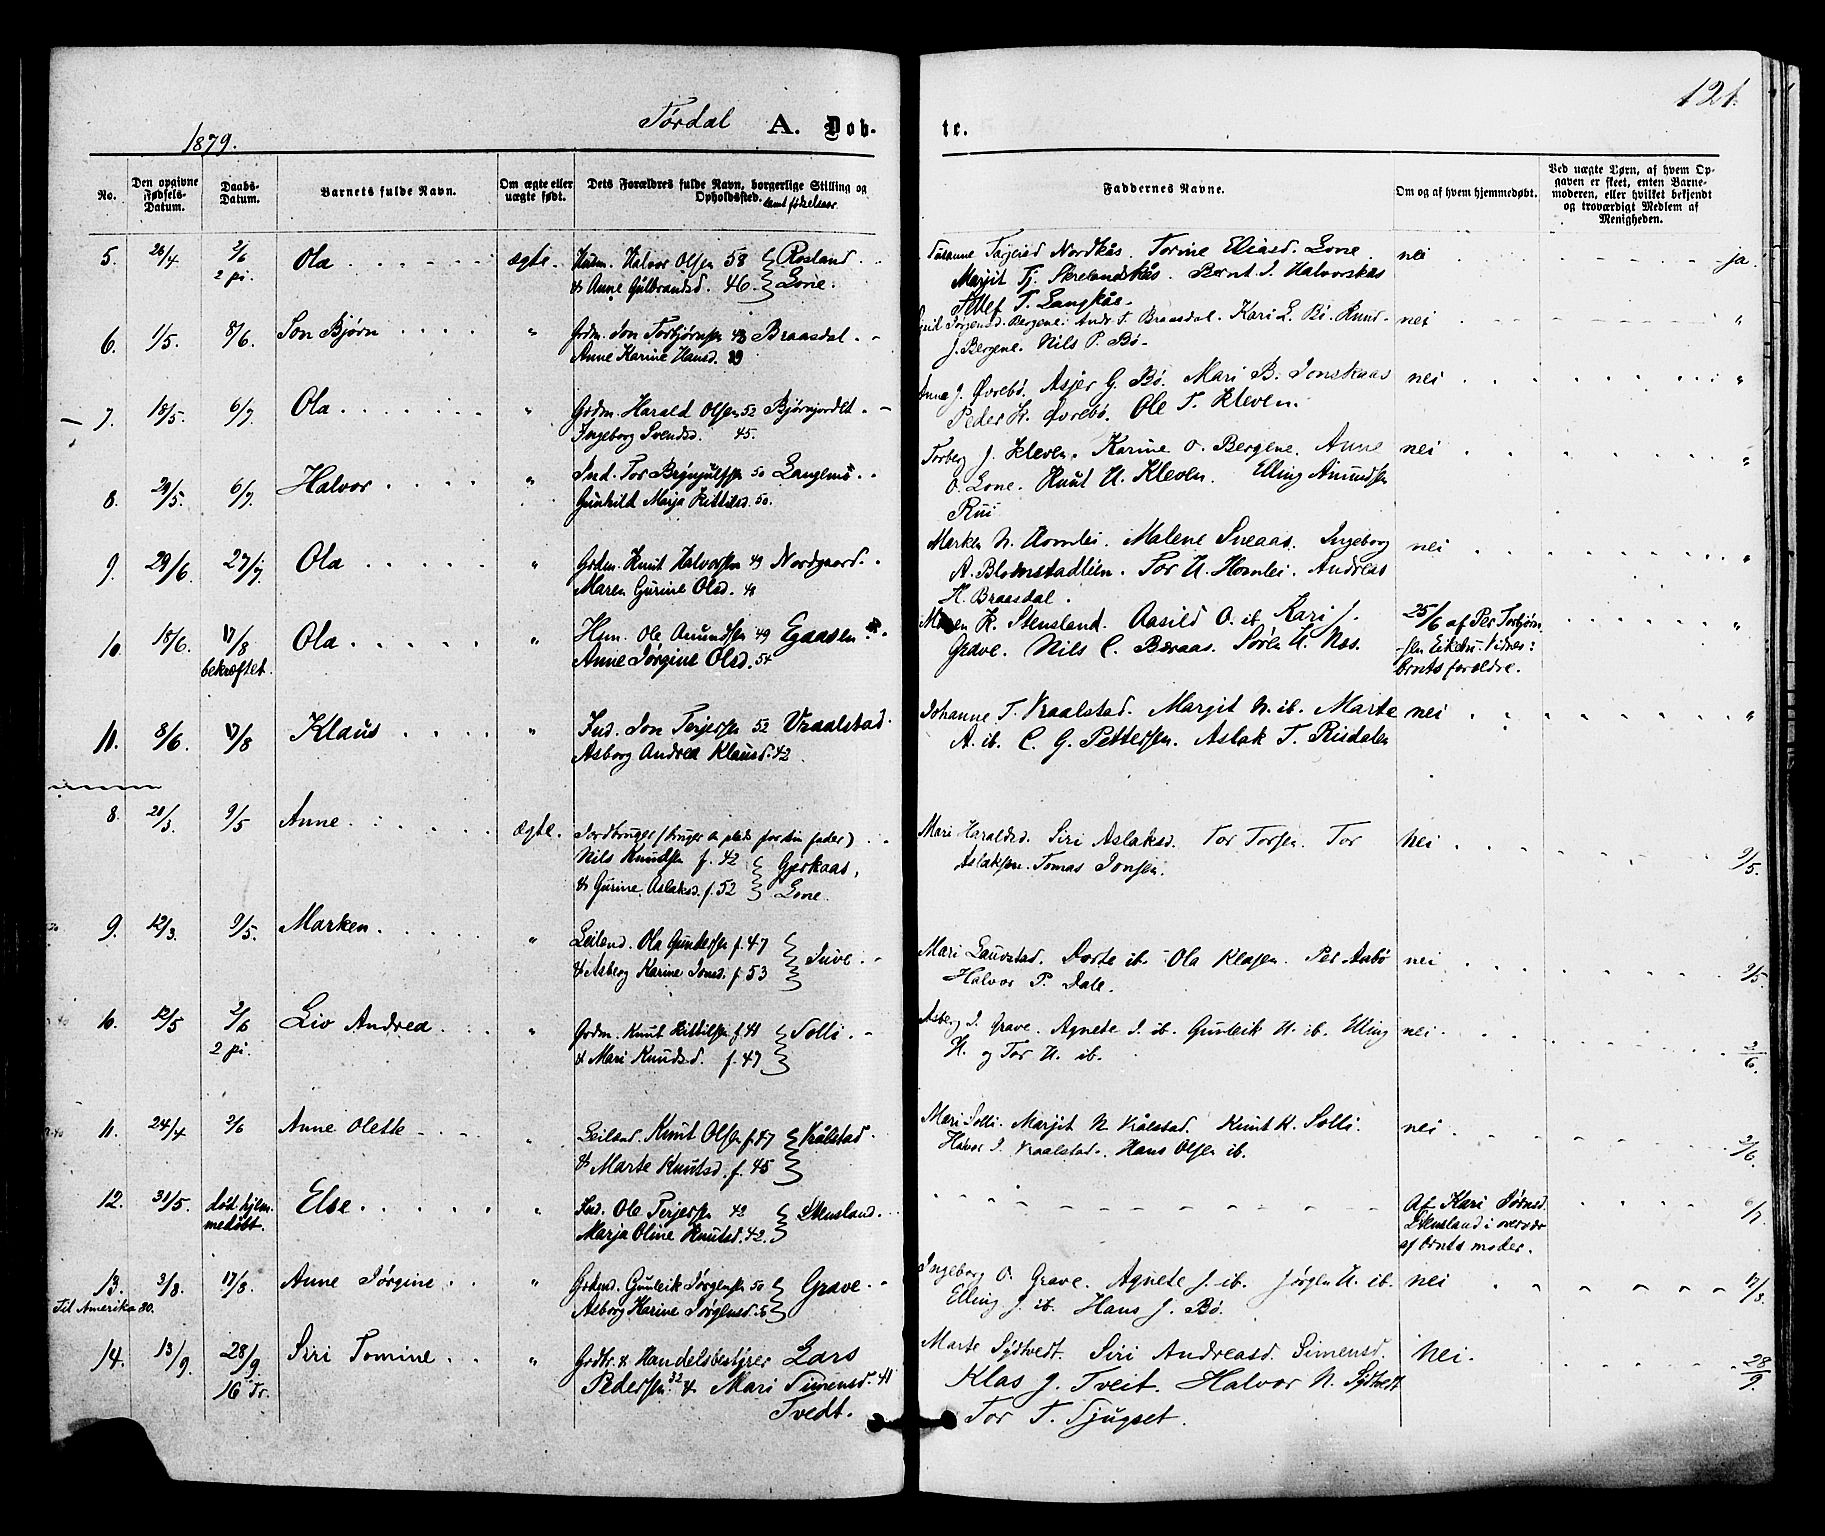 121.
Tørdal A. Døb- te.
1879.
No.
Den opgivne Fødsels-Datum.
Daabs-Datum.
Barnets fulde Navn.
Om ægte eller uægte født.
Dets Forældres fulde Navn, borgerlige Stilling og Opholdssted.
Faddernes Navne.
Om og af hvem hjemmedøbt.
Ved uægte Børn, af hvem Opgaven er skeet, enten Barnemoderen, eller hvilket bekjendt og troværdigt Medlem af Menigheden.
5. 26/4. 2/6 Ola ægte. Halvor Olsen 58 Rosland nei ja.
2 pi. & Anne Gulbrandsd. 46. Lone. Marjit Tj. Skrelandskås. Bernt J. Halvorskås
T. Langkås.
6. 1/5. 8/6. Jon Bjørn " Grdm. Jon Torbjørnsen 43 Braasdal Bergene. Andr. T. Braasdal. Kari L. Bø. Knud nei "
Anne Karine Hansd. 39 J. Bergene. Nils P. Bø.
7. 18/5. 6/7. Ola " Grdm. Harald Olsen 52 Bjørnjordet Anne J. Øvrebø. Asjer G. Bø. Mari B. Jonskaas nei "
Ingeborg Svendsd. 45. Peder K. Øvrebø. Ole T. Kleven.
8. 29/5. 6/7. Halvor " Ind. Tor Brynjulfsen 50 Langemo Torberg J. Kleven. Karine O. Bergene. Anne nei "
Gunhild Marja Kittilsd. 50. O. Lone. Knut H. Kleven. Elling Amundsen
Rui
9. 29/6. 27/7. Ola " Grdm. Knut Halvorsen 49 Nordgaard Marken N. Homlei. Malene Sneaas. Ingeborg nei "
Maren Gurine Olsd. 48 A. Blomstadlien. Tor H. Homlei. Andreas
H. Braasdal.
10 18/6. 17/8 Ola " Hsm. Ole Amundsen 49 Egaasen K. Stensland. Aasild O. ib. Kari J. 25/6 af Per Torbjørn- "
bekræftet. Anne Jørgine Olsd. 54 Grave. Nils C. Beraas. Søren H. Nos. forældre.
11. 8/6. 17/8 Klaus " Ind. Jon Terjessen 52 Vraalstad Johanne T. Vraalstad. Margit N. ib. Marte nei "
Asborg Andrea Klausd. 42 A. ib. C. G. Pettersen. Aslak T. Risdalen
8. 28/3. 9/5 Anne ægte. Jordbruger (bruger en plads for sin fader) Mari Haraldsd. Siri Aslaksd. Tor Torsen. Tor nei 9/5.
Nils Knudsen f. 42 Gjerkaas, Aslaksen. Tomas Jonsen.
& Gurine Aslaksd. f. 52 Lone.
9. 12/3. 9/5. Marken " Leilænd. Ola Gundersen f. 47 Juve Mari Lauvstad. Dorte ib. Ola Klasen. Per Aabø nei 9/5.
& Asberg Karine Jonsd. f. 53 Halvor P. Dale.
10. 12/5 2/6 Liv Andrea " Grdm. Knut Kittilsen f. 41 Solli Asberg J. Grave. Agnete J. ib. Gunleik H. ib. Elling nei 2/6.
2 pi. & Mari Knudsd. f. 47 H. og Tor H. ib.
11. 24/4 2/6 Anne Olette " Leilænd. Knut Olsen f. 47 Vrålstad Mari Solli. Marjit N. Vrålstad. Knut K. Solli. nei 2/6.
& Marte Knutsd. f. 45 Halvor J. Vraalstad. Hans Olsen ib.
12. 31/5. død hjem- Else " Ind. Ole Terjessen 43 Stensland Af Kari Jørnsd. 6/7
medøbt. Marja Oline Knutsd. 42. Stensland i overvær
af brnts moder.
13. 3/8. 17/8. Anne Jørgine " Gunleik Jørgensen 50 Grave Ingeborg O. Grave. Agnete J. ib. Jørgen H. ib. nei 17/8.
Til Amerika 80. Asborg Karine Jørgensd. 56 Elling J. ib. Hans J. Bø.
14. 13/9. 28/9. Siri Tomine " Grdbr. & Handelsbestyrer Lars Marte Sydtvedt. Siri Andreasd. Simensd. Nei. 28/9.
16 Tr. Pedersen 32 & Mari Simensd. 41 Klas J. Tveit. Halvor N. Sydtvedt
Tvedt. Tor T. Tjugset.